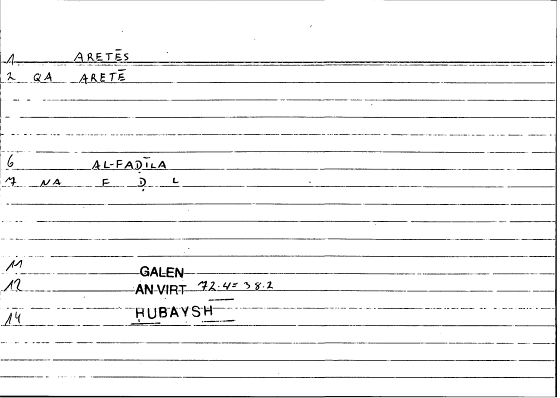 1 ARETĒS
2 QA ARETĒ
6 AL-FAḌĪLA
7 NA F Ḍ L
11 GALEN
12 AN VIRT 72.4= 38.2
14 ḤUBAYSH